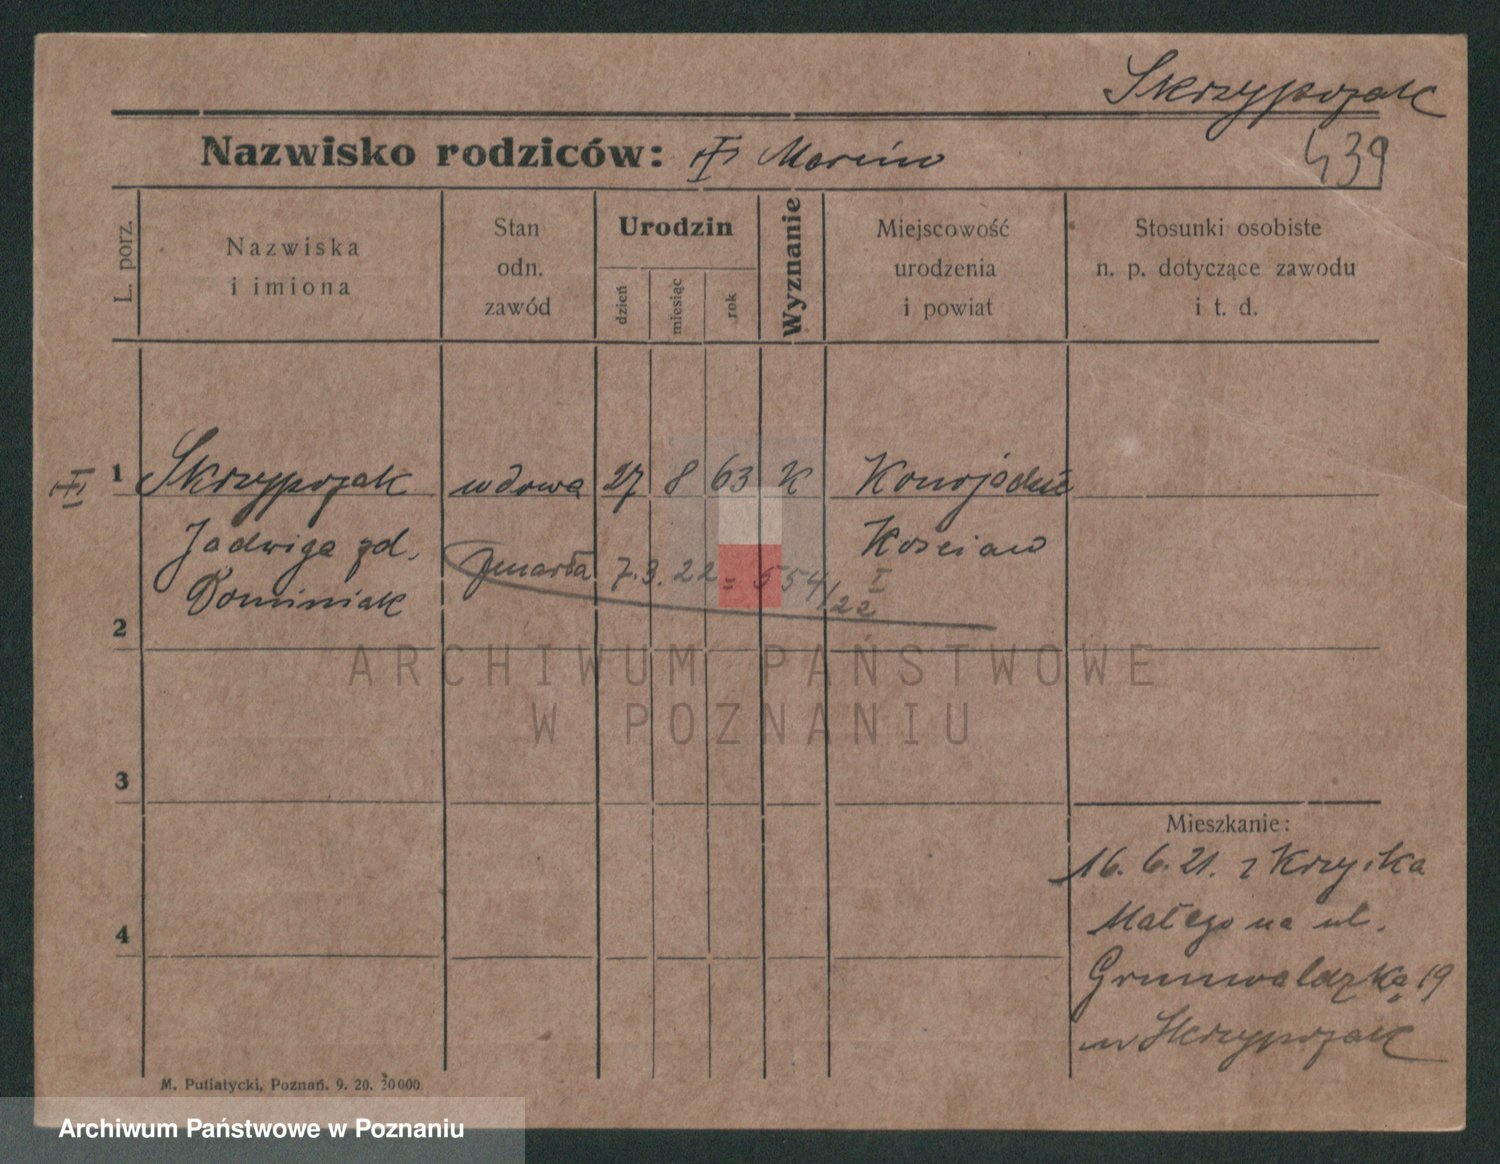 Skrzypczak
439
Nazwisko rodziców: Marcin
L. porz.
Nazwiska
i imiona
Stan
odn.
zawód
Urodzin
dzień
miesiąc
rok
Wyznanie
Miejscowość
urodzenia
i powiat
Stosunki osobiste
n. p. dotyczące zawodu
i t. d.
1 Skrzypczak wdowa 27 8 63 K
Jadwiga zd. Kościan
Dominiak zmarła 7.3.22 = 554/22 I
2
ARCHIWUM PAŃSTWOWE
W POZNANIU
3
Mieszkanie:
16. 6. 21. z Krzycka
Małego na ul.
4
Grunwaldzką 19
u Skrzypczak
M. Putiatycki, Poznań. 9. 20. 20000.
Archiwum Państwowe w Poznaniu